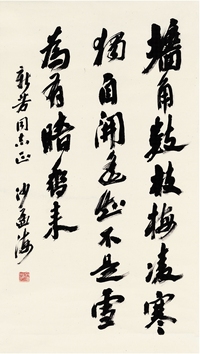 墙角数枝梅凌寒
独自开遥知不是雪
为有暗香来
新芳同志正 沙孟海